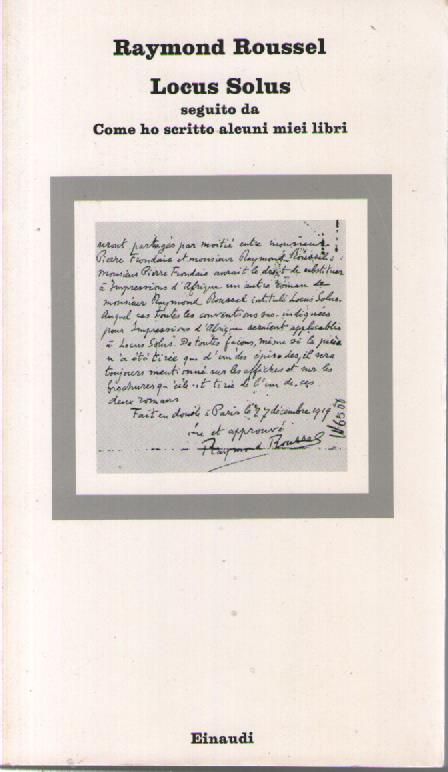 Raymond Roussel
Locus Solus
seguito da
Come ho scritto alcuni miei libri
seront partagés par moitié entre monsieur
Pierre Frondaie et monsieur Raymond Roussel;
monsieur Pierre Frondaie aurait le droit de substituer
à Impressions d'Afrique un autre roman de
monsieur Raymond Roussel intitulé Locus Solus.
Auquel cas toutes les conventions sus-indiquées
pour Impressions d'Afrique seraient applicables
à Locus Solus. De toutes façons, même si la pièce
n'a été tirée que d'un des épisodes, il sera
toujours mentionné sur les affiches et sur les
brochures qu'elle est tirée de l'un de ces
deux romans
Fait en double à Paris le 27 décembre 1919
lu et approuvé
Raymond Roussel
Einaudi